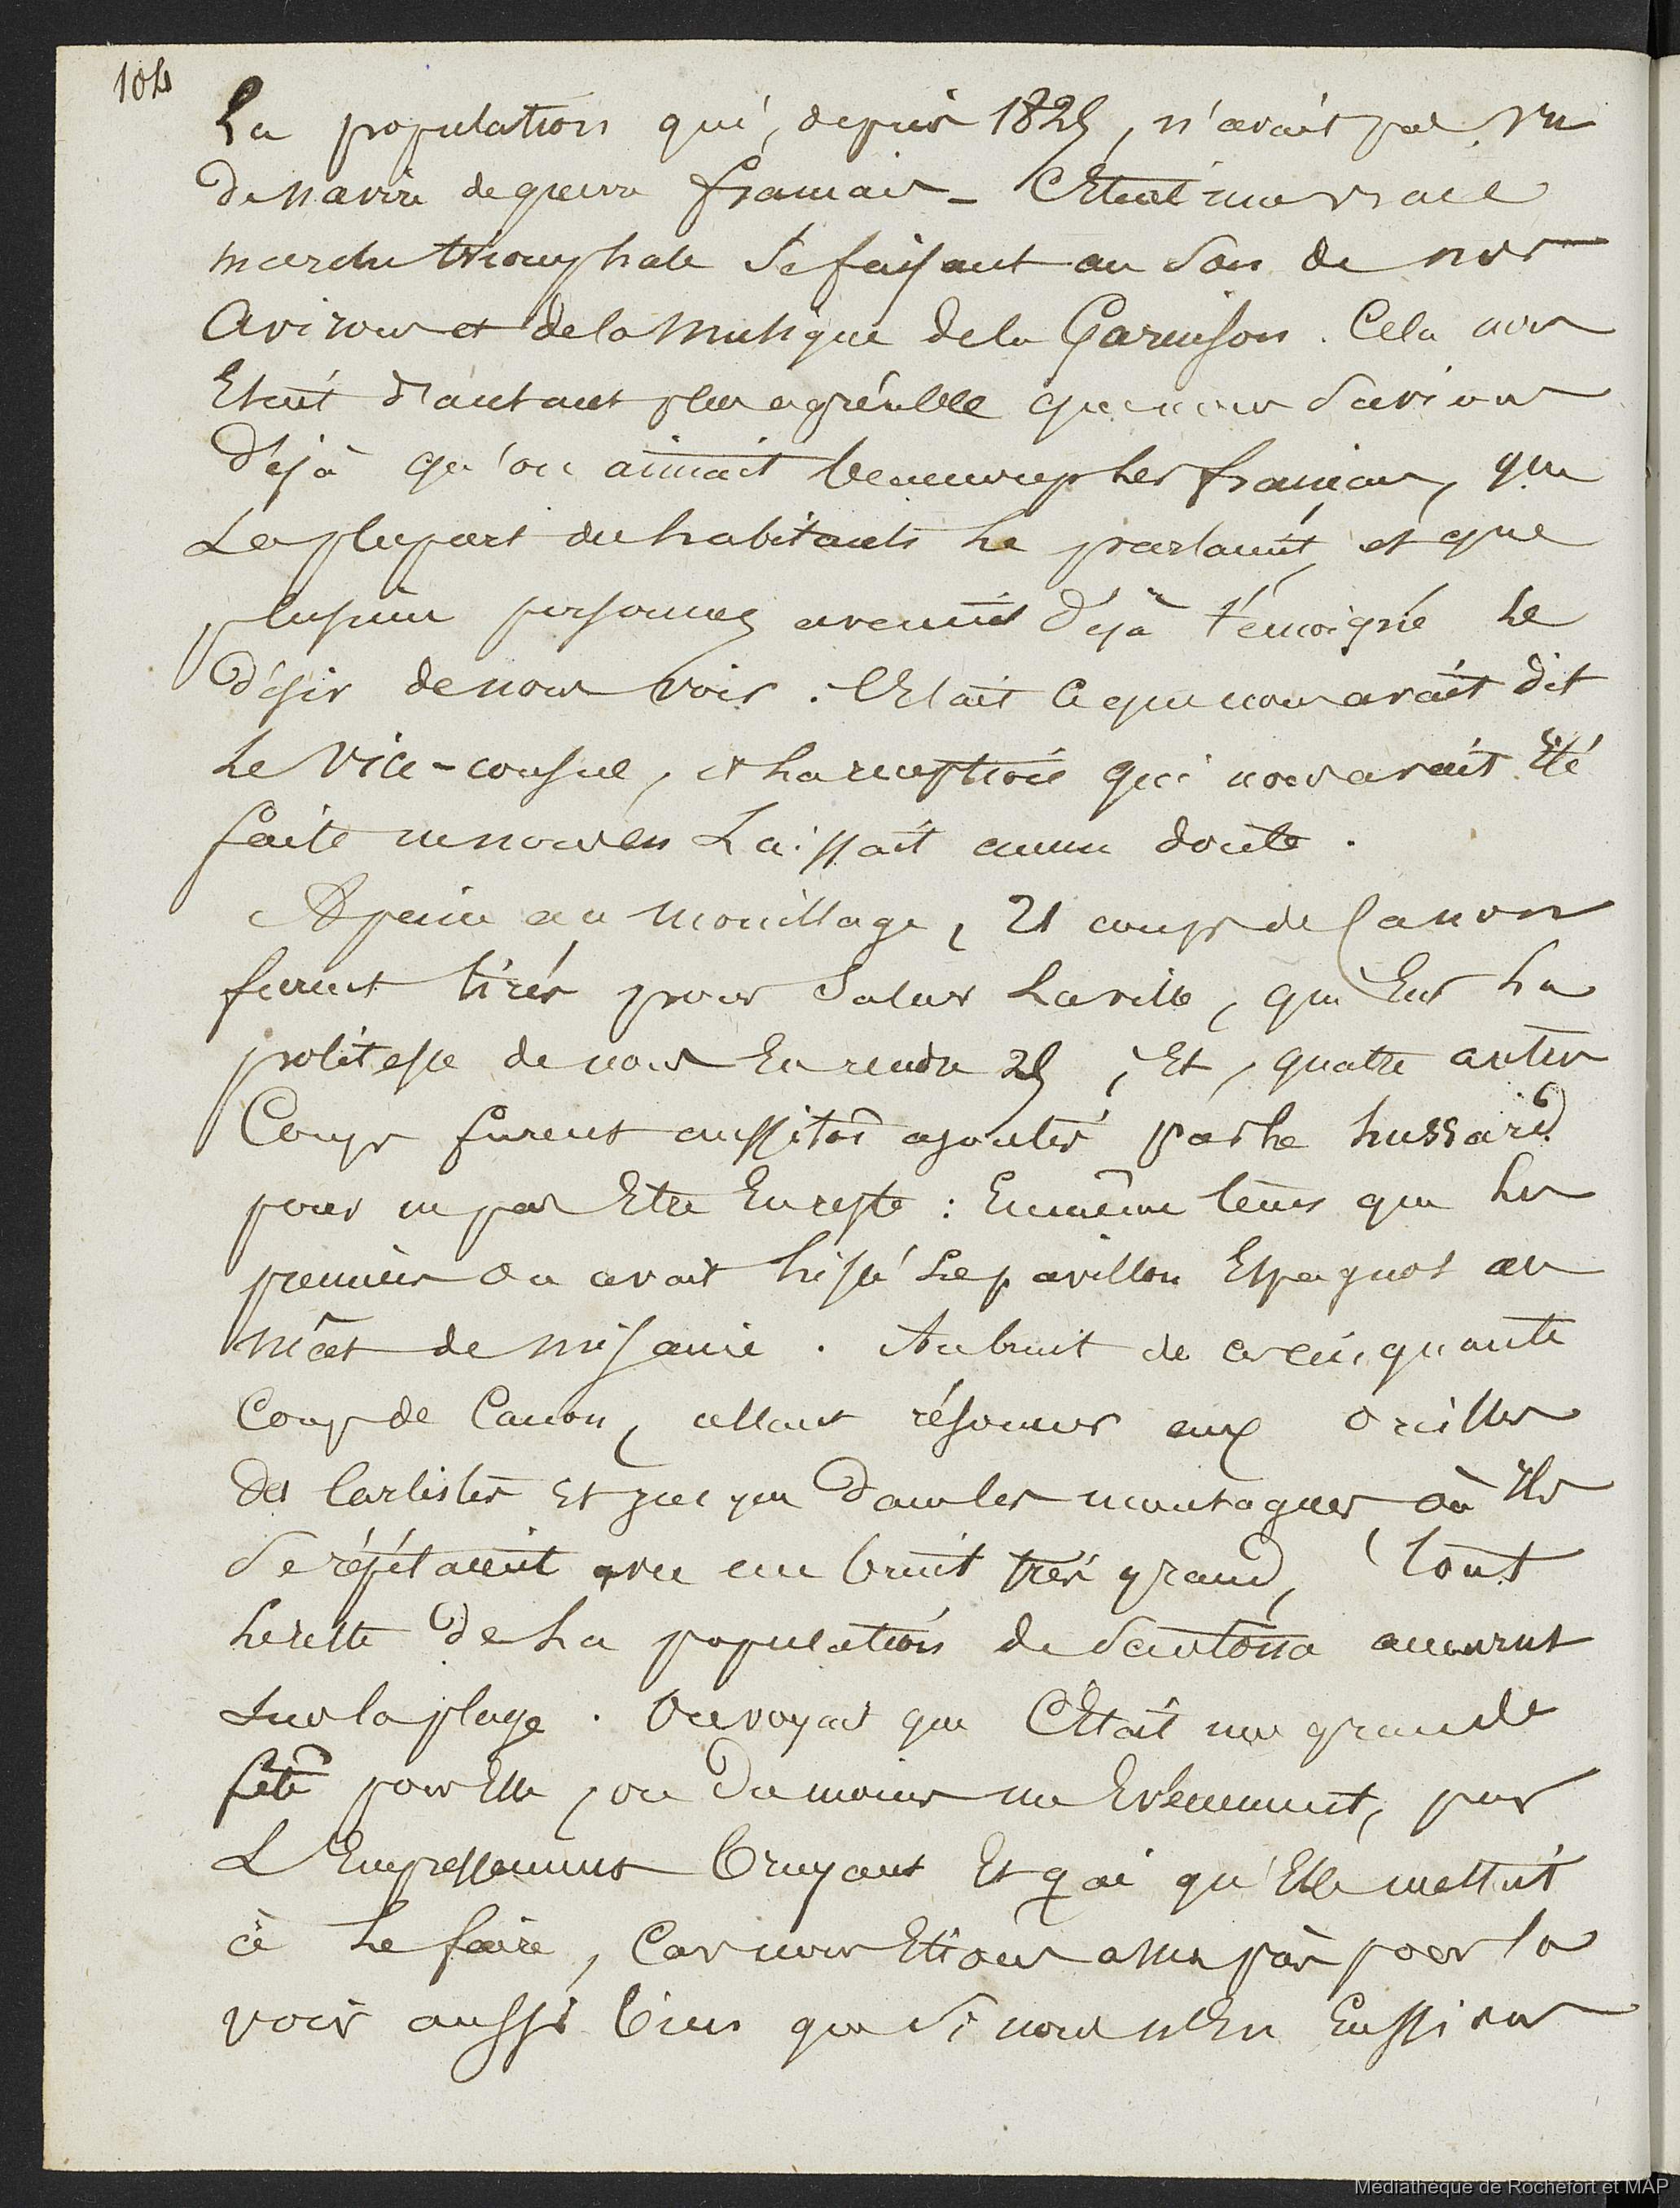 104
La population qui, depuis 1825, n'avait pas vu
de navire de guerre français - C'était une vraie
marche triomphale se faisant au son de nos
avirons et de la musique de la Garnison. Cela nous
Etait d'autant plus agréable que nous savions
déjà qu'on aimait beaucoup les français, que
La plupart des habitants le parlaient, et que
plusieurs personnes avaient déjà témoigné le
désir de nous voir. C'Etait ce que nous avait dit
le Vice-consul, et la reception qui nous avait Eté
faite ne nous en Laissait aucun doute.
A peine au mouillage, 21 coups de Canon
furent tirés pour saluer la ville, qui Eut la
politesse de nous En rendre 25, Et, quatre autres
Coups furent aussitôt ajoutés par le hussard
pour ne pas Etre En reste : En même tems que les
premiers on avait hissé le pavillon Espagnol au
mât de misaine. Au bruit de ces cinquante
Coups de Canon, allant résonner aux oreilles
des Carlistes Et jusque dans les montagnes où Ils
se répétaient avec un bruit très grand, tout
le reste de la population de Santona accourut
sur la plage. On voyait que C'Etait une grande
fête pour Elle, ou du moins un Evènement, par
L'Empressement bruyant Et gai qu'Elle mettait
à le faire, Car nous Etions assez près pour la
voir aussi bien que si nous n'En Eussions
Médiathèque de Rochefort et MAP